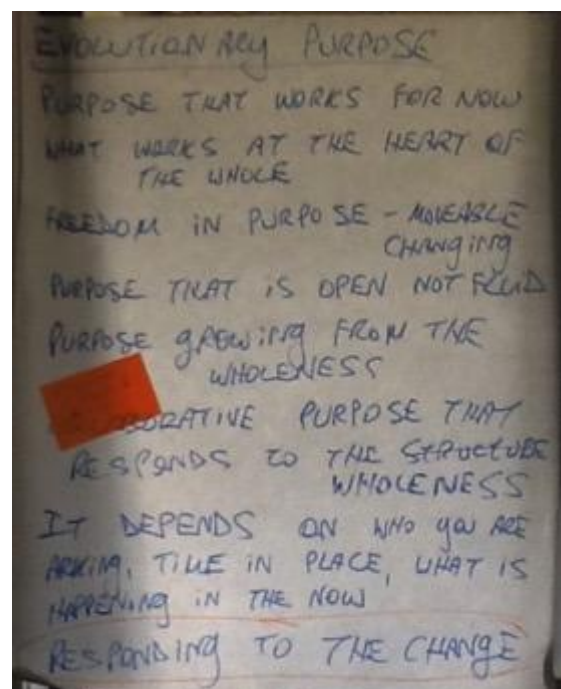 EVOLUTIONARY PURPOSE
PURPOSE THAT WORKS FOR NOW
WHAT WORKS AT THE HEART OF
THE WHOLE
FREEDOM IN PURPOSE - MOVEABLE
CHANGING
PURPOSE THAT IS OPEN NOT FLUID
PURPOSE GROWING FROM THE
WHOLENESS
BORATIVE PURPOSE THAT
RESPONDS TO THE STRUCTURE
WHOLENESS
IT DEPENDS ON WHO YOU ARE
ASKING, TIME IN PLACE, WHAT IS
HAPPENING IN THE NOW
RESPONDING TO THE CHANGE